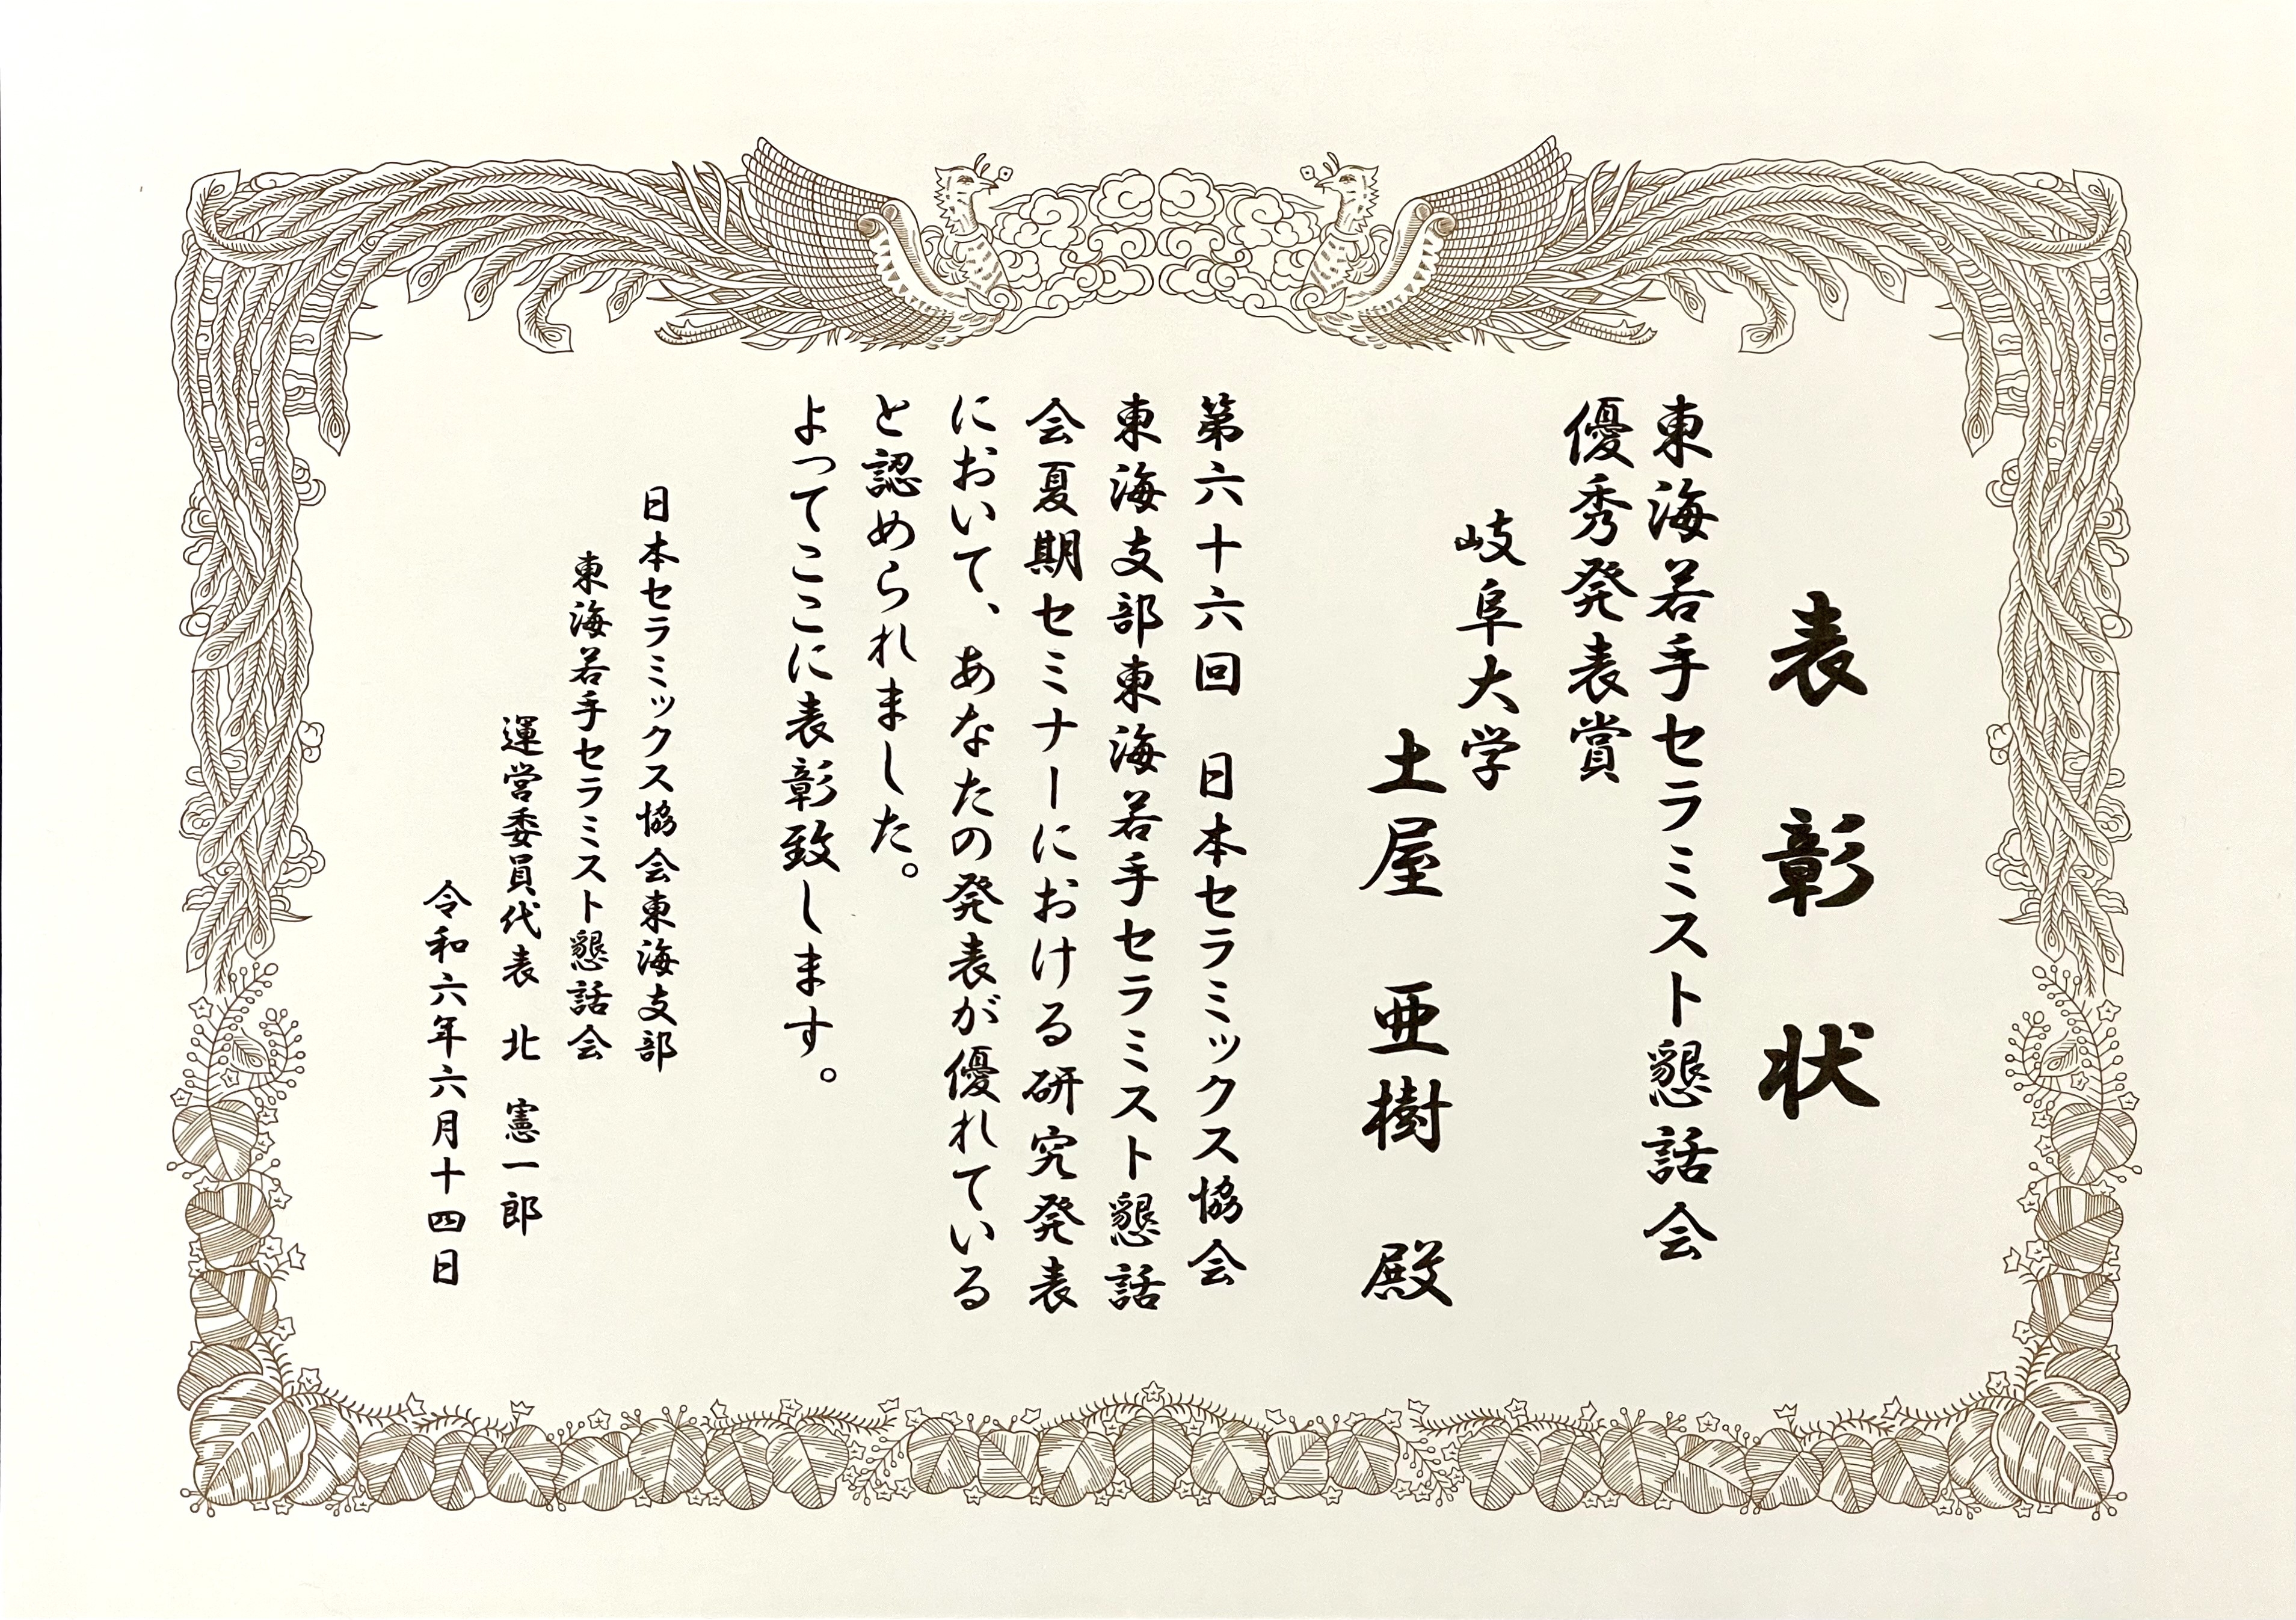 表彰状
東海若手セラミスト懇話会
優秀発表賞
岐阜大学
土屋　亜樹　殿
第六十六回　日本セラミックス協会
東海支部東海若手セラミスト懇話
会夏期セミナーにおける研究発表
において、あなたの発表が優れている
と認められました。
よってここに表彰致します。
日本セラミックス協会東海支部
東海若手セラミスト懇話会
運営委員代表　北　憲一郎
令和六年六月十四日